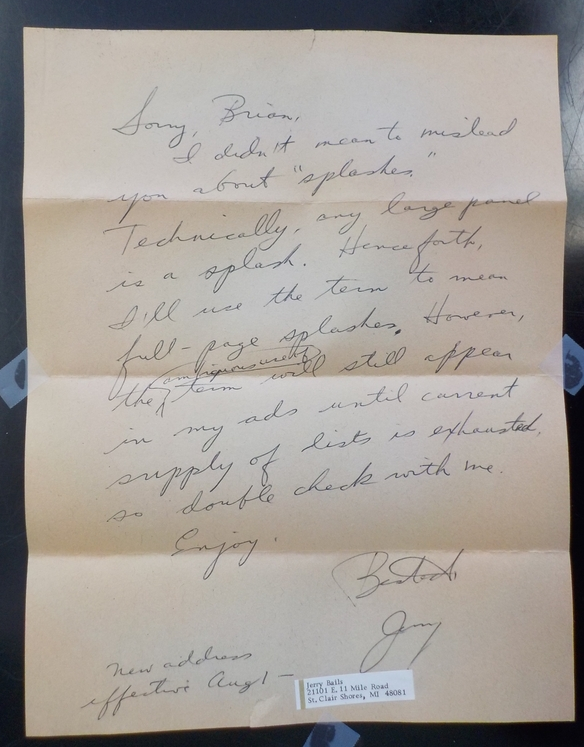 Sorry, Brian,
I didn't mean to mislead
you about "splashes."
Technically, any large panel
is a splash. Henceforth,
I'll use the term to mean
full-page splashes. However,
the term will still appear
in my ads until current
supply of lists is exhausted,
so double check with me.
Enjoy.
Jerry
New address
effective Aug 1 —
Jerry Bails
21101 E. 11 Mile Road
St. Clair Shores, MI 48081